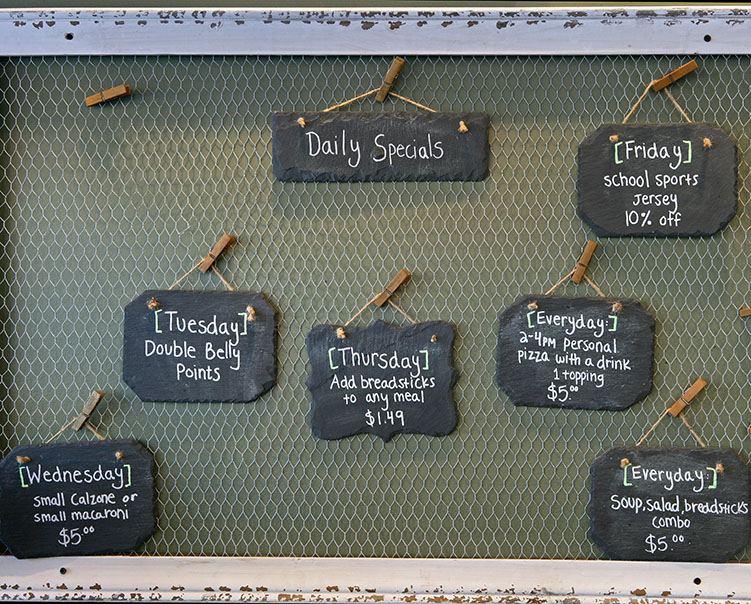 Daily Specials
[Friday]
school sports
Jersey
10% off
[Tuesday]
Double Belly
Points
[Thursday]
Add breadsticks
to any meal
$1.49
[Everyday:]
2-4pm personal
pizza with a drink
1 topping
$5.00
[Wednesday]
small Calzone or
small macaroni
$5.00
[Everyday:]
Soup, salad, breadsticks
combo
$5.00